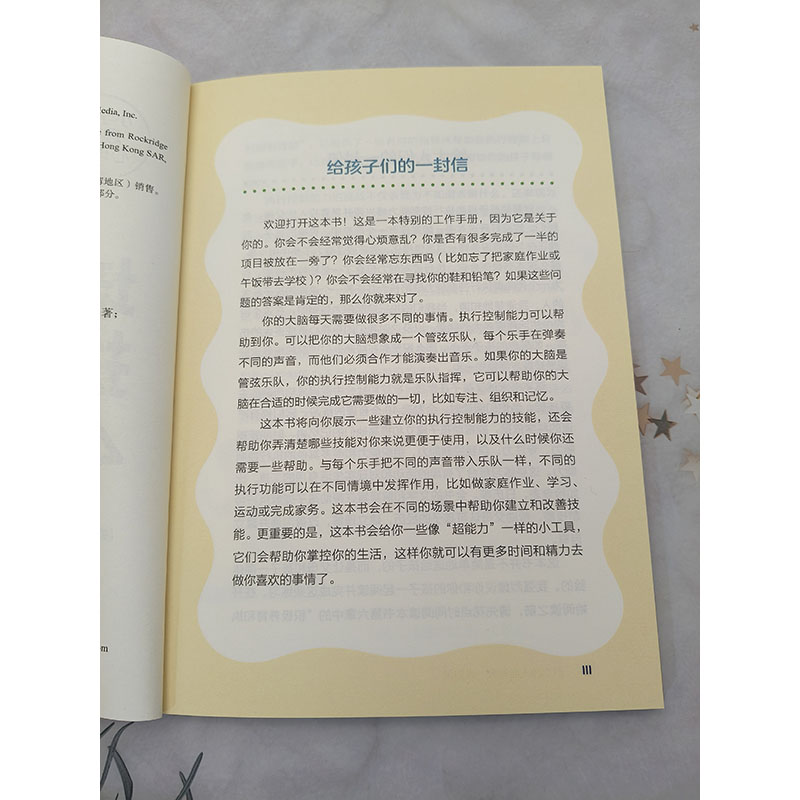 edia, Inc.
from Rockridge
Hong Kong SAR,
地区）销售。
部分。
著；
om
给孩子们的一封信
欢迎打开这本书！这是一本特别的工作手册，因为它是关于
你的。你会不会经常觉得心烦意乱？你是否有很多完成了一半的
项目被放在一旁了？你会经常忘东西吗（比如忘了把家庭作业或
午饭带去学校）？你会不会经常在寻找你的鞋和铅笔？如果这些问
题的答案是肯定的，那么你就来对了。
你的大脑每天需要做很多不同的事情。执行控制能力可以帮
助到你。可以把你的大脑想象成一个管弦乐队，每个乐手在弹奏
不同的声音，而他们必须合作才能演奏出音乐。如果你的大脑是
管弦乐队，你的执行控制能力就是乐队指挥，它可以帮助你的大
脑在合适的时候完成它需要做的一切，比如专注、组织和记忆。
这本书将向你展示一些建立你的执行控制能力的技能，还会
帮助你弄清楚哪些技能对你来说更便于使用，以及什么时候你还
需要一些帮助。与每个乐手把不同的声音带入乐队一样，不同的
执行功能可以在不同情境中发挥作用，比如做家庭作业、学习、
运动或完成家务。这本书会在不同的场景中帮助你建立和改善技
能。更重要的是，这本书会给你一些像“超能力”一样的小工具，
它们会帮助你掌控你的生活，这样你就可以有更多时间和精力去
做你喜欢的事情了。
III